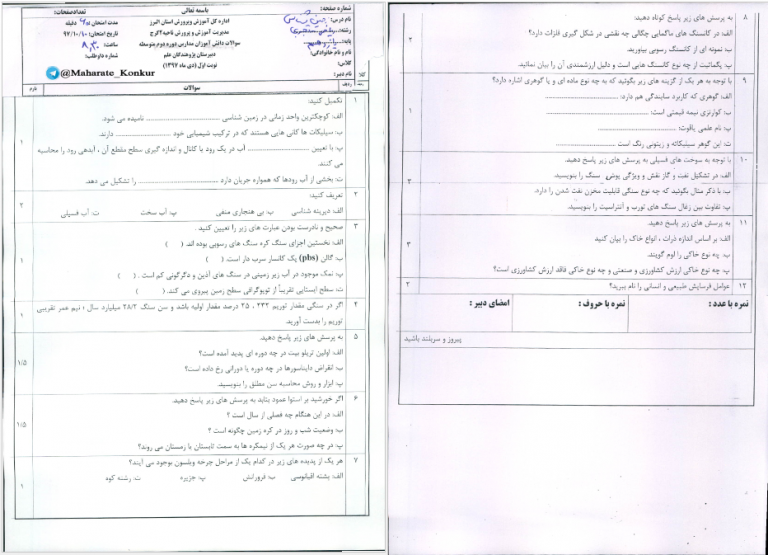 باسمه تعالی
شماره صفحه:
تعدادصفحات:
نام درس: زمین شناسی
اداره کل آموزش وپرورش استان البرز
مدت امتحان: ۹۰ دقیقه
رشته:
مدیریت آموزش و پرورش ناحیه۲کرج
تاریخ امتحان: ۹۷/۱۰/۱۰
پایه: یازدهم
سوالات دانش آموزان مدارس دوره دوم متوسطه
ساعت: ۸,۳۰
نام و نام خانوادگی:
دبیرستان پژوهندگان علم
شماره داوطلب:
کلاس:
نوبت اول (دی ماه ۱۳۹۷)
نام دبیر:
@Maharate_Konkur
ردیف
سوالات
بارم
۱ تکمیل کنید:
الف: کوچکترین واحد زمانی در زمین شناسی ........................ نامیده می شود.
ب: سیلیکات ها کانی هایی هستند که در ترکیب شیمیایی خود .................. دارند.
پ: با تعیین .............................. آب در یک رود یا کانال و اندازه گیری سطح مقطع آن ، آبدهی رود را محاسبه
می کنند.
ت: بخشی از آب رودها که همواره جریان دارد .......................... را تشکیل می دهد.
۱
۲ تعریف کنید:
الف: دیرینه شناسی ب: بی هنجاری منفی پ: آب سخت ت: آب فسیلی
۳ صحیح و نادرست بودن عبارت های زیر را تعیین کنید .
الف: نخستین اجزای سنگ کره سنگ های رسوبی بوده اند. ( )
ب: گالن (pbs) یک کانسار سرب دار است. ( )
پ: نمک موجود در آب زیر زمینی در سنگ های آذرین و دگرگونی کم است . ( )
ت: سطح ایستابی تقریباً از توپوگرافی سطح زمین پیروی می کند. ( )
۱
۴ اگر در سنگی مقدار توریم ۲۳۲ ، ۲۵ درصد مقدار اولیه باشد و سن سنگ ۲۸/۲ میلیارد سال ؛ نیم عمر تقریبی
توریم را بدست آورید.
۱
۵ به پرسش های زیر پاسخ دهید.
الف: اولین تریلو بیت در چه دوره ای پدید آمده است؟
ب: انقراض دایناسورها در چه دوره یا دورانی رخ داده است؟
پ: ابزار و روش محاسبه سن مطلق را بنویسید.
۱/۵
۶ اگر خورشید بر استوا عمود بتابد به پرسش های زیر پاسخ دهید.
الف: در این هنگام چه فصلی از سال است ؟
ب: وضعیت شب و روز در کره زمین چگونه است ؟
پ: در چه صورت هر یک از نیمکره ها به سمت تابستان یا زمستان می روند؟
۱/۵
۷ هر یک از پدیده های زیر در کدام یک از مراحل چرخه ویلسون بوجود می آیند؟
الف: پشته اقیانوسی ب: فرورانش پ: جزیره ت: رشته کوه
۱
۸ به پرسش های زیر پاسخ کوتاه دهید:
الف: در کانسنگ های ماگمایی چگالی چه نقشی در شکل گیری فلزات دارد؟
ب: نمونه ای از کانسنگ رسوبی بیاورید.
پ: پگماتیت از چه نوع کانسنگ هایی است و دلیل ارزشمندی آن را بیان نمائید.
۲
۹ با توجه به هر یک از گزینه های زیر بگوئید که به چه نوع ماده ای و یا گوهری اشاره دارد؟
الف: گوهری که کاربرد سایندگی هم دارد: ........................
ب: کوارتزی نیمه قیمتی است: ........................
پ: نام علمی یاقوت: ........................
ت: این گوهر سیلیکاته و زیتونی رنگ است ........................
۱
۱۰ با توجه به سوخت های فسیلی به پرسش های زیر پاسخ دهید.
الف: در تشکیل نفت و گاز نقش و ویژگی پوش سنگ را بنویسید.
ب: با ذکر مثال بگوئید که چه نوع سنگی قابلیت مخزن نفت شدن را دارد.
پ: تفاوت بین زغال سنگ های تورب و آنتراسیت را بنویسید.
۱۱ به پرسش های زیر پاسخ دهید.
الف: بر اساس اندازه ذرات ، انواع خاک را بیان کنید
ب: چه نوع خاکی را لوم گویند.
پ: چه نوع خاکی ارزش کشاورزی و صنعتی و چه نوع خاکی فاقد ارزش کشاورزی است؟
۳
۱۲ عوامل فرسایش طبیعی و انسانی را نام ببرید؟
۲
نمره با عدد :
نمره با حروف :
امضای دبیر :
پیروز و سربلند باشید